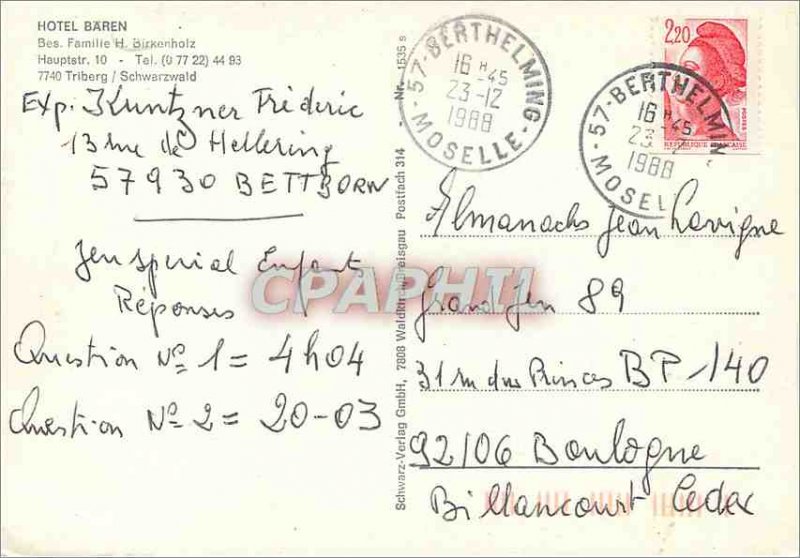 HOTEL BÄREN
Bes. Familie H. Birkenholz
Hauptstr. 10 - Tel. (0 77 22) 44 93
7740 Triberg / Schwarzwald
Exp. Kuntzner Fréderic
13 rue de Hellering
57930 BETTBORN
Jeu special Enfants
Réponses
Question No 1 = 4h04
Question No 2 = 20-03
Schwarz-Verlag GmbH, 7808 Waldkirch/Breisgau Postfach 314 - Nr. 1535 s
57-BERTHELMING-
16 H 45
23-12
1988
MOSELLE
2,20
POSTES
REPUBLIQUE FRANCAISE
57-BERTHELMIN
16 H 45
1988
MOSEL
Almanachs Jean Lavigne
Grand Jeu 89
31 rue des Princes BP-140
92106 Boulogne
Billancourt Cedex
CPAPHIL